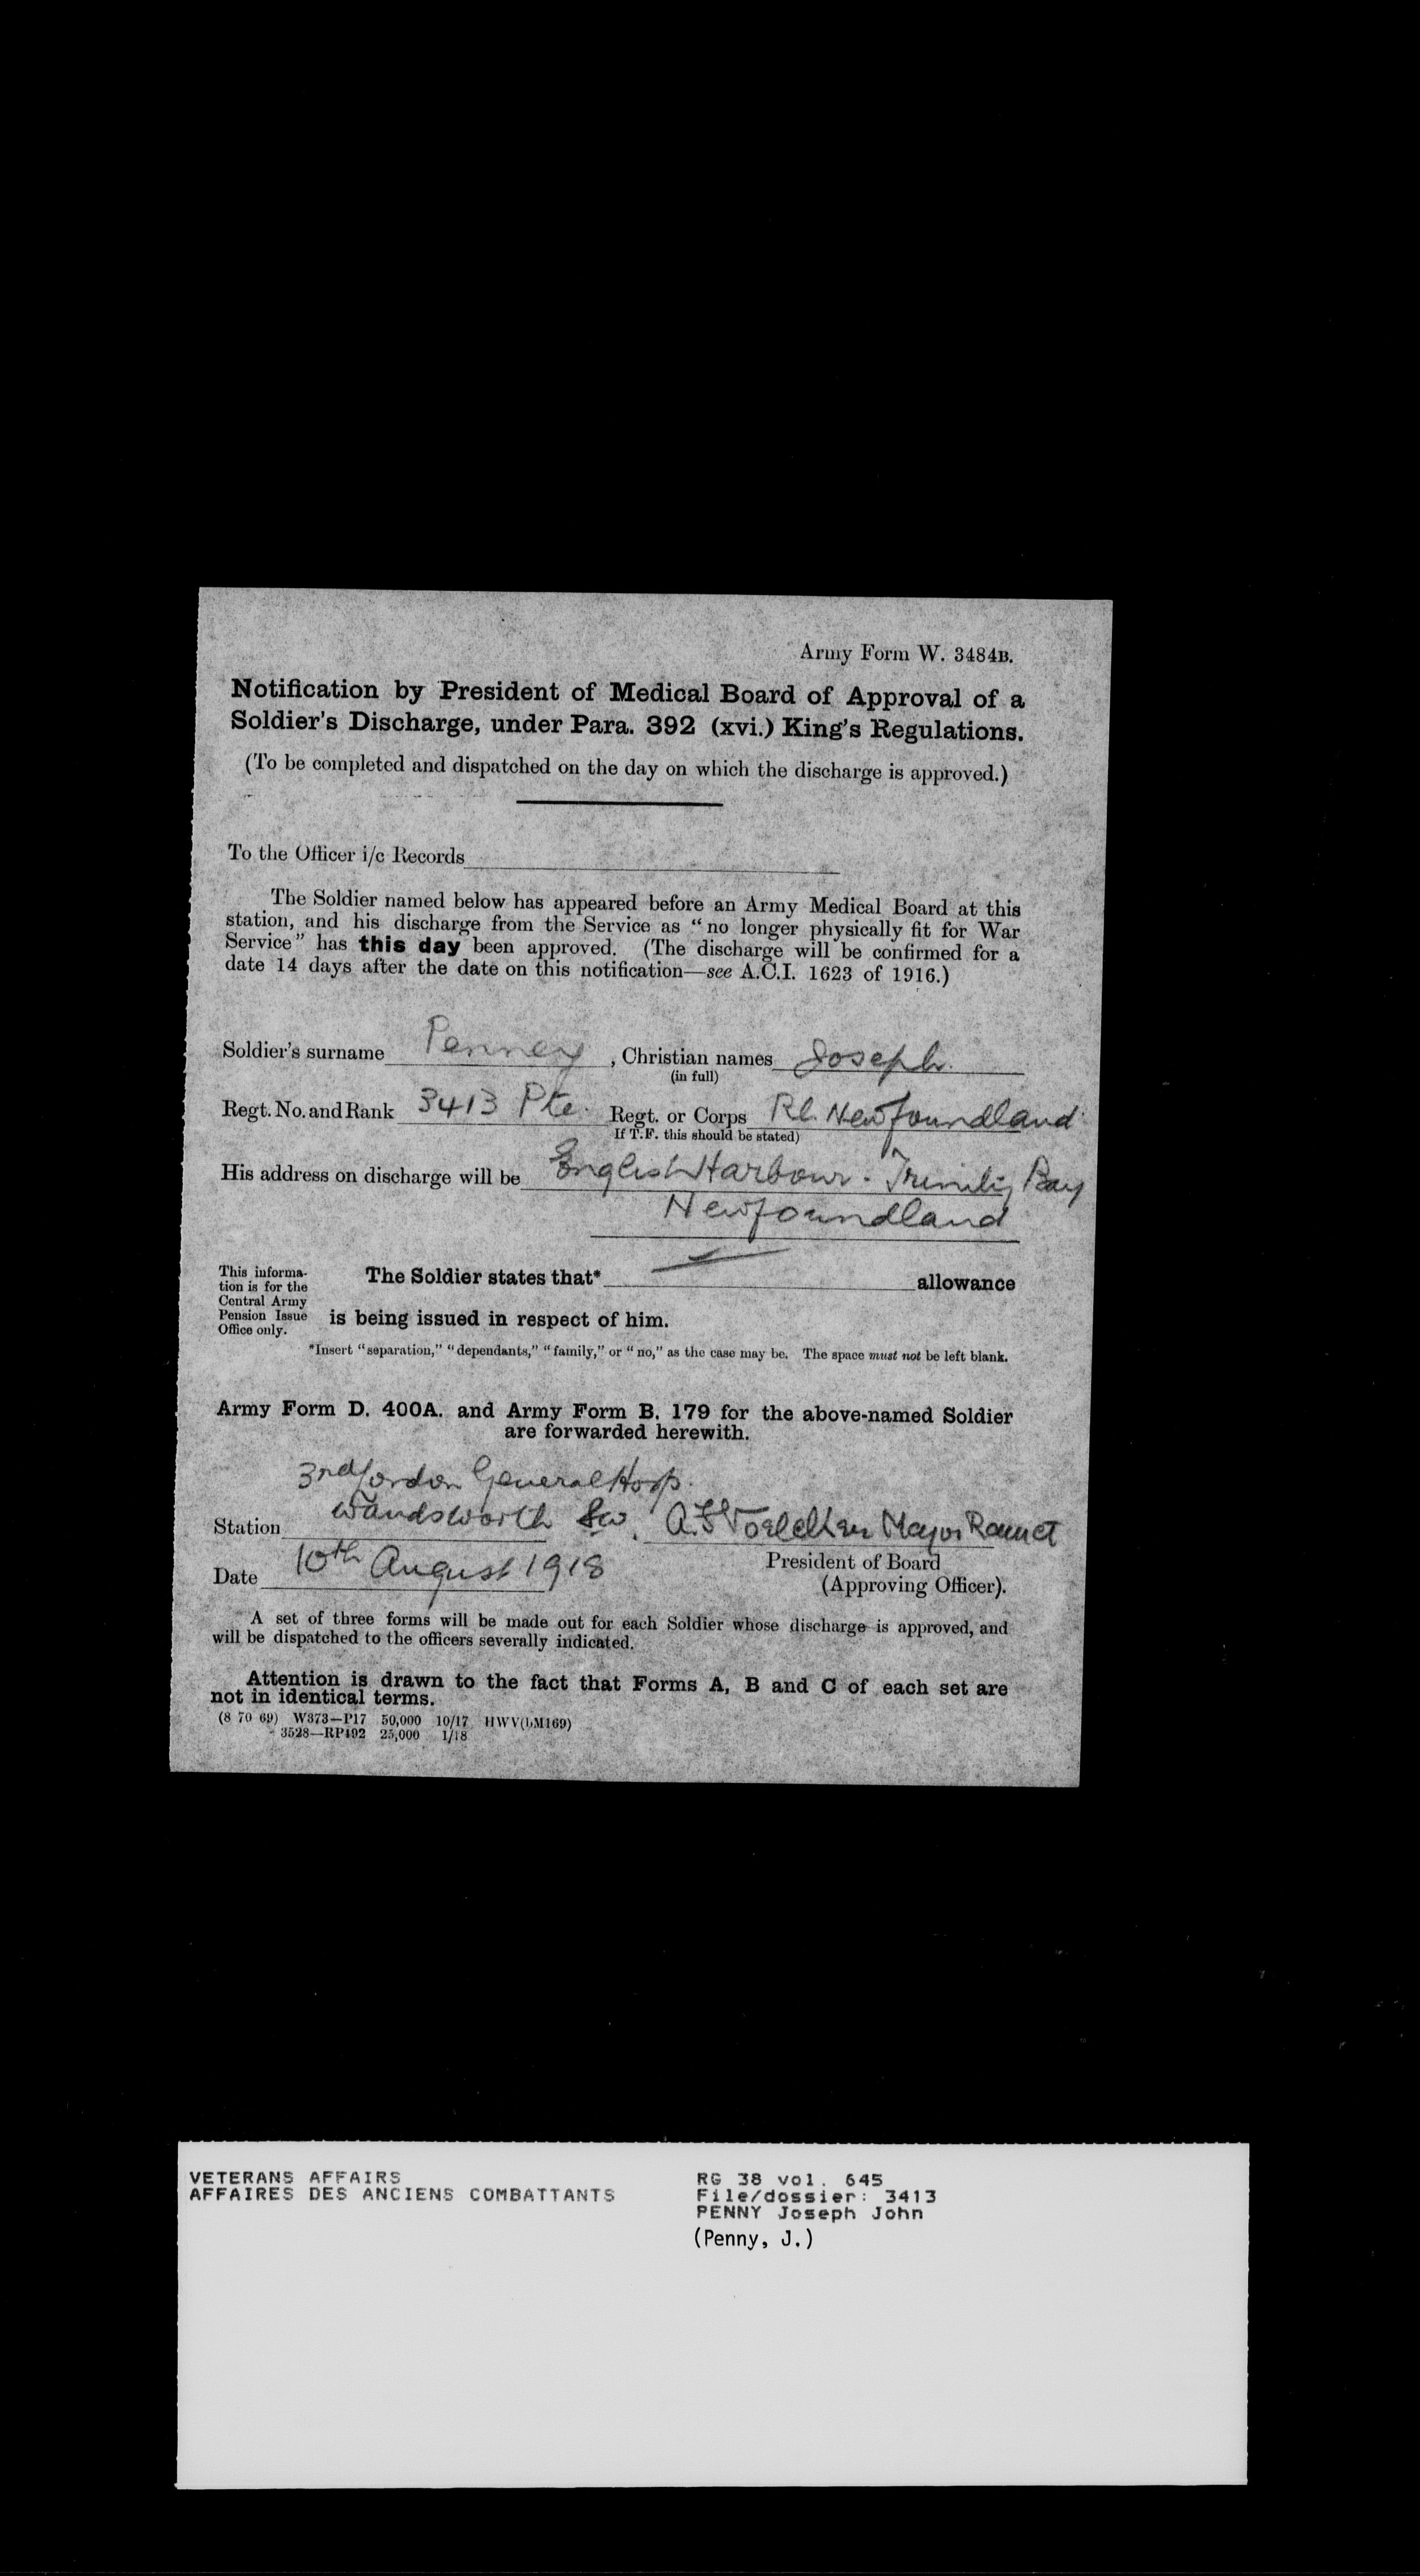 Army Form W. 3484B.
Notification by President of Medical Board of Approval of a
Soldier's Discharge, under Para. 392 (xvi.) King's Regulations.
(To be completed and dispatched on the day on which the discharge is approved.)
To the Officer i/c Records
The Soldier named below has appeared before an Army Medical Board at this
station, and his discharge from the Service as "no longer physically fit for War
Service" has this day been approved. (The discharge will be confirmed for a
date 14 days after the date on this notification—see A.C.I. 1623 of 1916.)
Soldier's surname Penney, Christian names Joseph
(in full)
Regt. No. and Rank 3413 Pte. Regt. or Corps Rl. Newfoundland
If T.F. this should be stated)
His address on discharge will be English Harbour. Trinity Bay
Newfoundland
This informa-
tion is for the
Central Army
Pension Issue
Office only.
The Soldier states that* allowance
is being issued in respect of him.
*Insert "separation," "dependants," "family," or "no," as the case may be. The space must not be left blank.
Army Form D. 400A. and Army Form B. 179 for the above-named Soldier
are forwarded herewith.
3rd London General Hosp.
Station Wandsworth SW. Major Ramct
Date 10th August 1918 President of Board
(Approving Officer).
A set of three forms will be made out for each Soldier whose discharge is approved, and
will be dispatched to the officers severally indicated.
Attention is drawn to the fact that Forms A, B and C of each set are
not in identical terms.
(8 70 69) W373—P17 50,000 10/17 HWV(LM169)
3528—RP192 25,000 1/18
VETERANS AFFAIRS
AFFAIRES DES ANCIENS COMBATTANTS
RG 38 vol. 645
File/dossier: 3413
PENNY Joseph John
(Penny, J.)